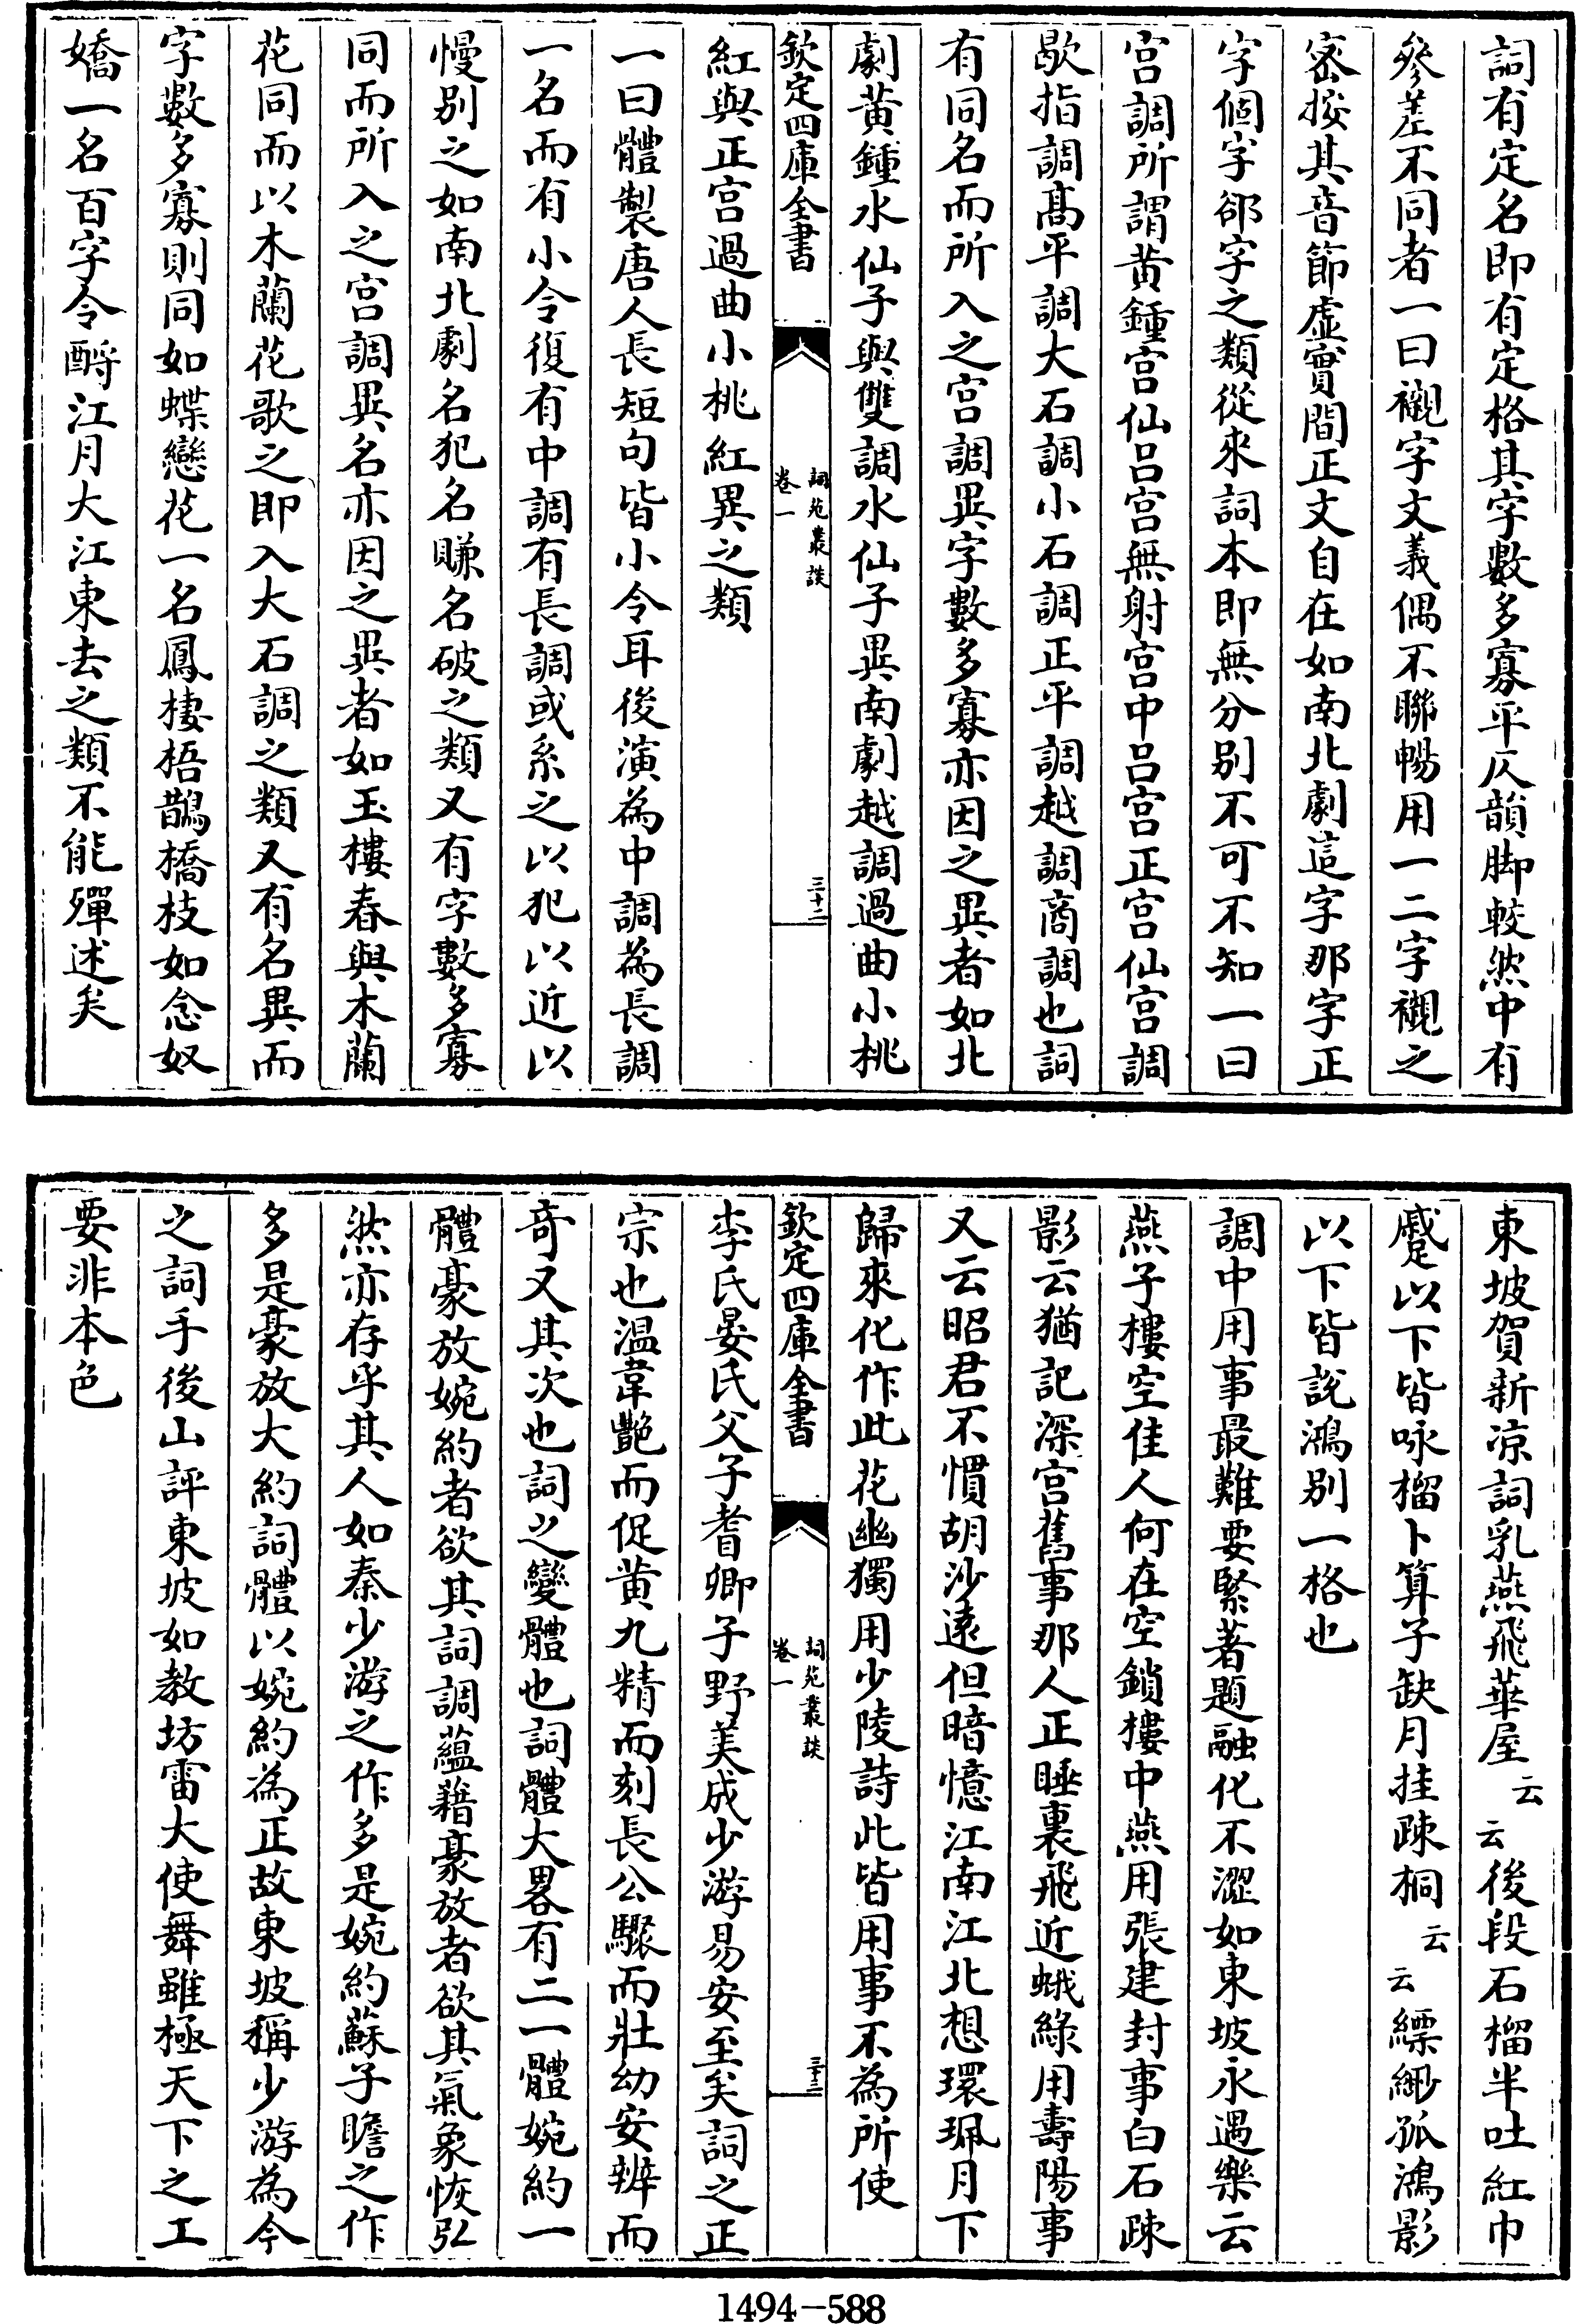 詞有定名即有定格其字數多寡平仄韻脚較然中有
參差不同者一曰襯字文義偶不聯暢用一二字襯之
密按其音節虛實間正文自在如南北劇這字那字正
字個字卻字之類從來詞本即無分别不可不知一曰
宫調所謂黄鍾宫仙吕宫無射宫中吕宫正宫仙宫調
歇指調高平調大石調小石調正平調越調商調也詞
有同名而所入之宫調異字數多寡亦因之異者如北
劇黄鍾水仙子與雙調水仙子異南劇越調過曲小桃
欽定四庫全書
詞苑叢談
卷一
三十二
紅與正宫過曲小桃紅異之類
一曰體製唐人長短句皆小令耳後演為中調為長調
一名而有小令復有中調有長調或系之以犯以近以
慢别之如南北劇名犯名賺名破之類又有字數多寡
同而所入之宫調異名亦因之異者如玉樓春與木蘭
花同而以木蘭花歌之即入大石調之類又有名異而
字數多寡則同如蝶戀花一名鳳棲梧鵲橋枝如念奴
嬌一名百字令酹江月大江東去之類不能殫述矣
東坡賀新凉詞乳燕飛華屋云云後段石榴半吐紅巾
蹙以下皆咏榴卜算子缺月挂疎桐云云縹緲孤鴻影
以下皆說鴻别一格也
調中用事最難要緊著題融化不澀如東坡永遇樂云
燕子樓空佳人何在空鎖樓中燕用張建封事白石疎
影云猶記深宫舊事那人正睡裏飛近蛾綠用壽陽事
又云昭君不慣胡沙遠但暗憶江南江北想環珮月下
歸來化作此花幽獨用少陵詩此皆用事不為所使
欽定四庫全書
詞苑叢談
卷一
三十三
李氏晏氏父子耆卿子野美成少游易安至矣詞之正
宗也温韋艷而促黄九精而刻長公驟而壯幼安辨而
奇又其次也詞之變體也詞體大畧有二一體婉約一
體豪放婉約者欲其詞調蘊藉豪放者欲其氣象恢弘
然亦存乎其人如秦少游之作多是婉約蘇子瞻之作
多是豪放大約詞體以婉約為正故東坡稱少游為今
之詞手後山評東坡如教坊雷大使舞雖極天下之工
要非本色
1494—588